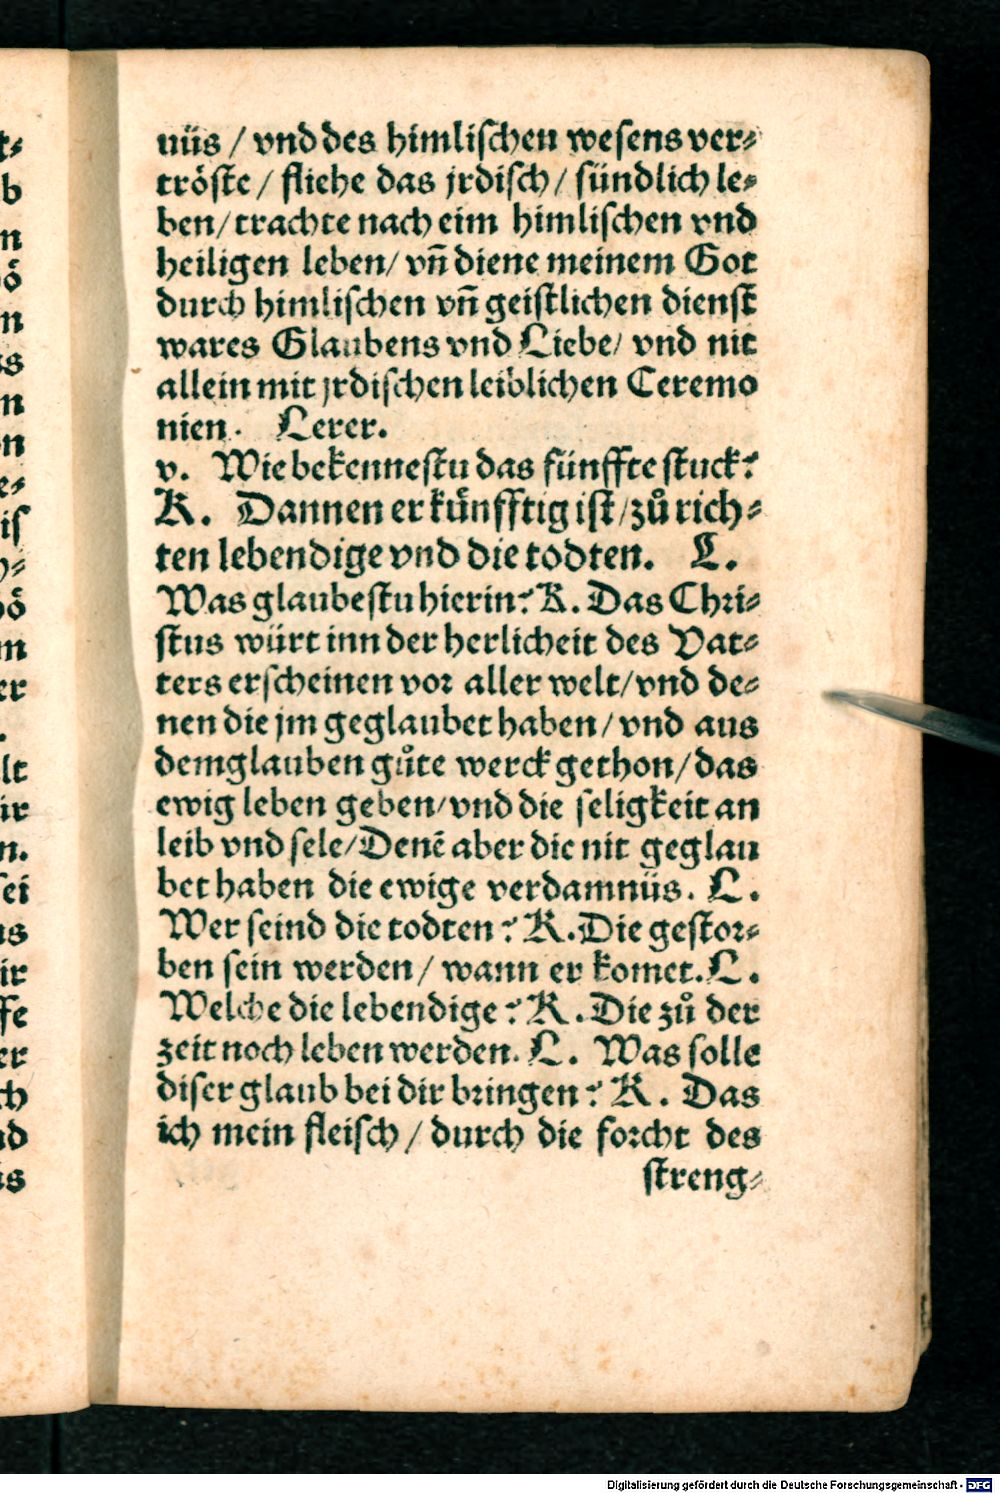 nüs / vnd des himlischen wesens ver⸗
tröste / fliehe das jrdisch / sündlich le⸗
ben / trachte nach eim himlischen vnd
heiligen leben / vñ diene meinem Got
durch himlischen vñ geistlichen dienst
wares Glaubens vnd Liebe / vnd nit
allein mit jrdischen leiblichen Ceremo
nien. Lerer.
v. Wie bekennestu das fünffte stuck?
K. Dannen er künfftig ist / zů rich⸗
ten lebendige vnd die todten. L.
Was glaubestu hierin? K. Das Chri⸗
stus würt inn der herlicheit des Vat⸗
ters erscheinen vor aller welt / vnd de⸗
nen die jm geglaubet haben / vnd aus
dem glauben gůte werck gethon / das
ewig leben geben / vnd die seligkeit an
leib vnd sele / Denẽ aber die nit geglau
bet haben die ewige verdamnüs. L.
Wer seind die todten? K. Die gestor⸗
ben sein werden / wann er komet. L.
Welche die lebendige? K. Die zů der
zeit noch leben werden. L. Was solle
diser glaub bei dir bringen? K. Das
ich mein fleisch / durch die forcht des
streng⸗
Digitalisierung gefördert durch die Deutsche Forschungsgemeinschaft - DFG